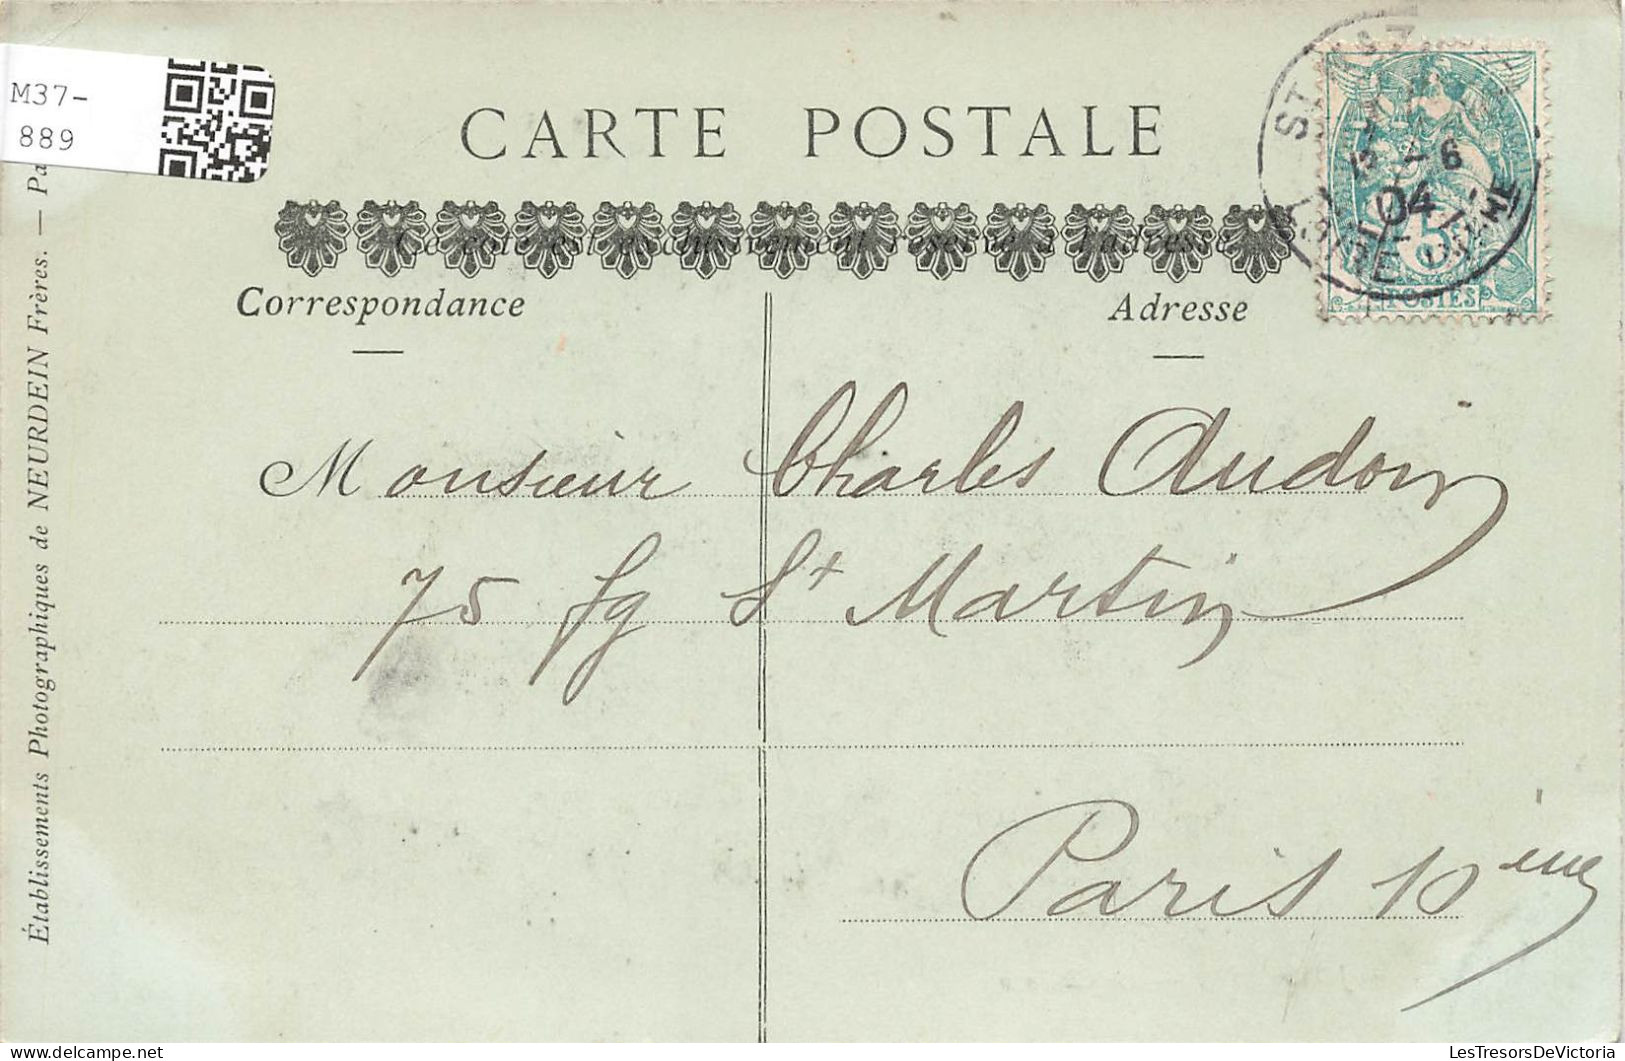 M37-
889
CARTE POSTALE
Ce côté est exclusivement réservé à l'adresse
Correspondance
Adresse
6
04
5
POSTES
Monsieur Charles Audoin
75 fg St Martin
Paris 10eme
Établissements Photographiques de NEURDEIN Frères. — Pa
LesTresorsDeVictoria